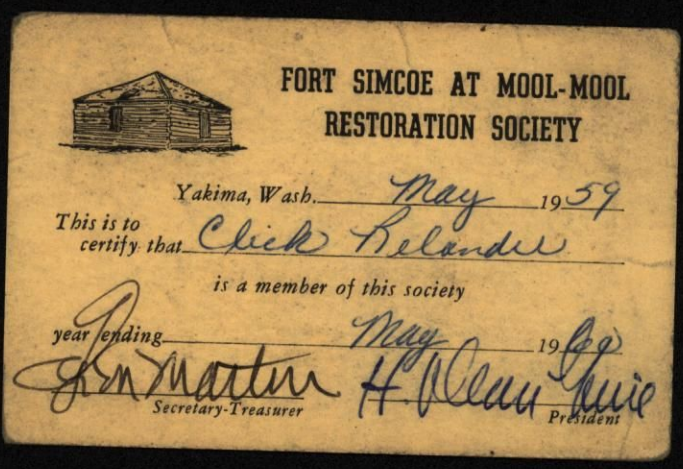 FORT SIMCOE AT MOOL-MOOL
RESTORATION SOCIETY
Yakima, Wash. May 1959
This is to
certify that Click Relander
is a member of this society
year ending May 1960
Martin
Secretary-Treasurer
H. Dean
President